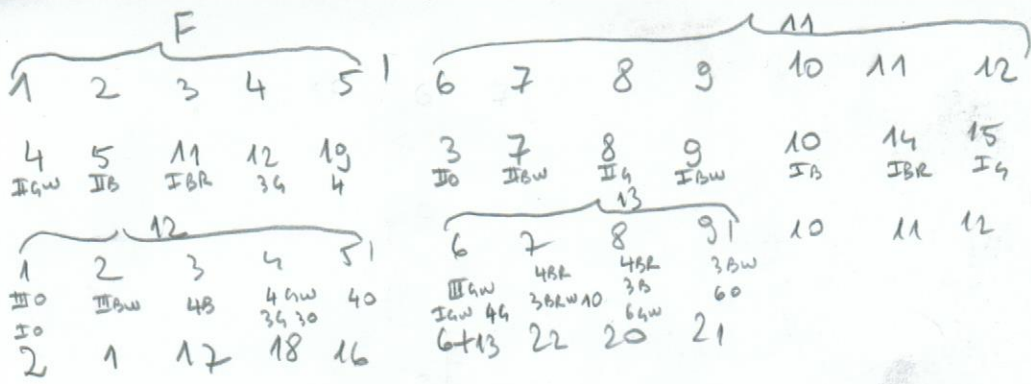 F 11
1 2 3 4 5 | 6 7 8 9 10 11 12
4 5 11 12 19 3 7 8 9 10 14 15
IIGW IIB IBR 3G 4 IIO IIBW IIG IBW IB IBR IG
12 13
1 2 3 4 5 | 6 7 8 9 | 10 11 12
IIIO IIIBW 4B 4GW 40 IIIGW 4BR 4BR 3BW
IO 3G 30 IGW 4G 3BRW10 3B 60
6GW
2 1 17 18 16 6+13 22 20 21